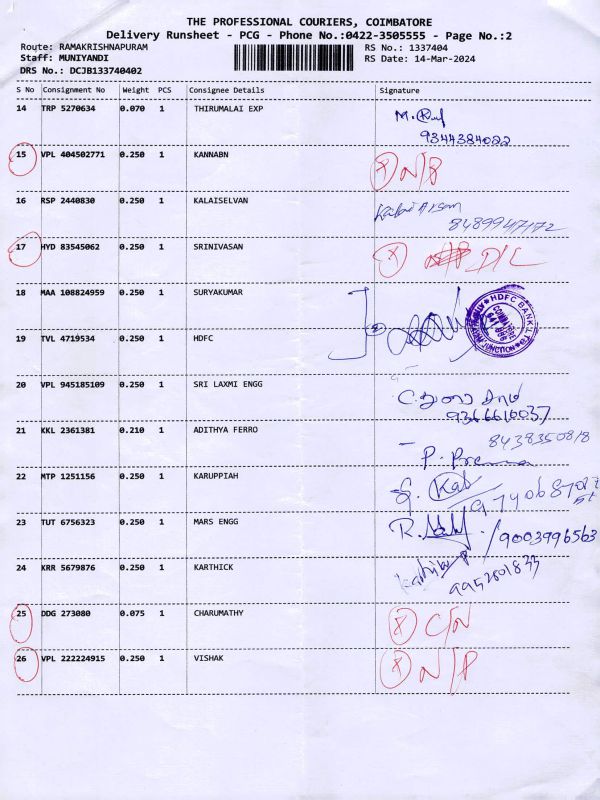 THE PROFESSIONAL COURIERS, COIMBATORE
Delivery Runsheet - PCG - Phone No.:0422-3505555 - Page No.:2
Route: RAMAKRISHNAPURAM RS No.: 1337404
Staff: MUNIYANDI RS Date: 14-Mar-2024
DRS No.: DCJB133740402
S No Consignment No Weight PCS Consignee Details Signature
14 TRP 5270634 0.070 1 THIRUMALAI EXP
9344384022
15 VPL 404502771 0.250 1 KANNABN
16 RSP 2440830 0.250 1 KALAISELVAN
8489947172
17 HYD 83545062 0.250 1 SRINIVASAN D/L
18 MAA 108824959 0.250 1 SURYAKUMAR
HDFC BANK LTD
19 TVL 4719534 0.250 1 HDFC
20 VPL 945185109 0.250 1 SRI LAXMI ENGG
9366610037
21 KKL 2361381 0.210 1 ADITHYA FERRO 8438350818
P. Prema
22 MTP 1251156 0.250 1 KARUPPIAH
23 TUT 6756323 0.250 1 MARS ENGG 9003996563
24 KRR 5679876 0.250 1 KARTHICK
9952801833
25 DDG 273080 0.075 1 CHARUMATHY C/N
26 VPL 222224915 0.250 1 VISHAK N/P